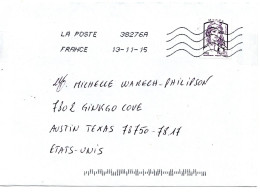 LA POSTE 38276A
FRANCE 13-11-15
MICHELLE WARECH-PHILIPSON
7802 GINKGO COVE
AUSTIN TEXAS 78750-7817
ÉTATS-UNIS